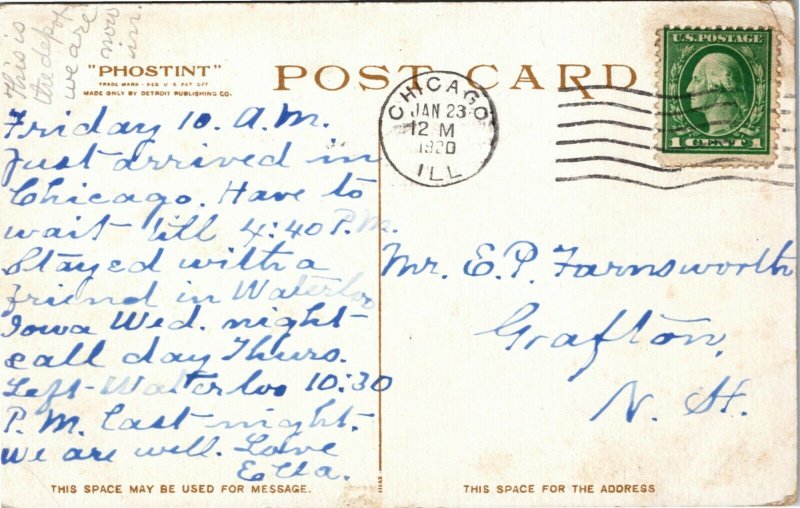 This is
the depot
we are
now
in.
"PHOSTINT"
TRADE MARK - REG U.S. PAT. OFF.
MADE ONLY BY DETROIT PUBLISHING CO.
POST CARD
CHICAGO
JAN 23
12 M
1920
ILL
U.S. POSTAGE
1 CENT 1
Friday 10. A.M.
Just arrived in
Chicago. Have to
wait till 4:40 P.M.
Stayed with a
friend in Waterloo
Iowa Wed. night
& all day Thurs.
Left Waterloo 10:30
P.M. last night.
We are well. Love
Ella.
Mr. E.P. Farnsworth
Grafton,
N. H.
THIS SPACE MAY BE USED FOR MESSAGE.
THIS SPACE FOR THE ADDRESS